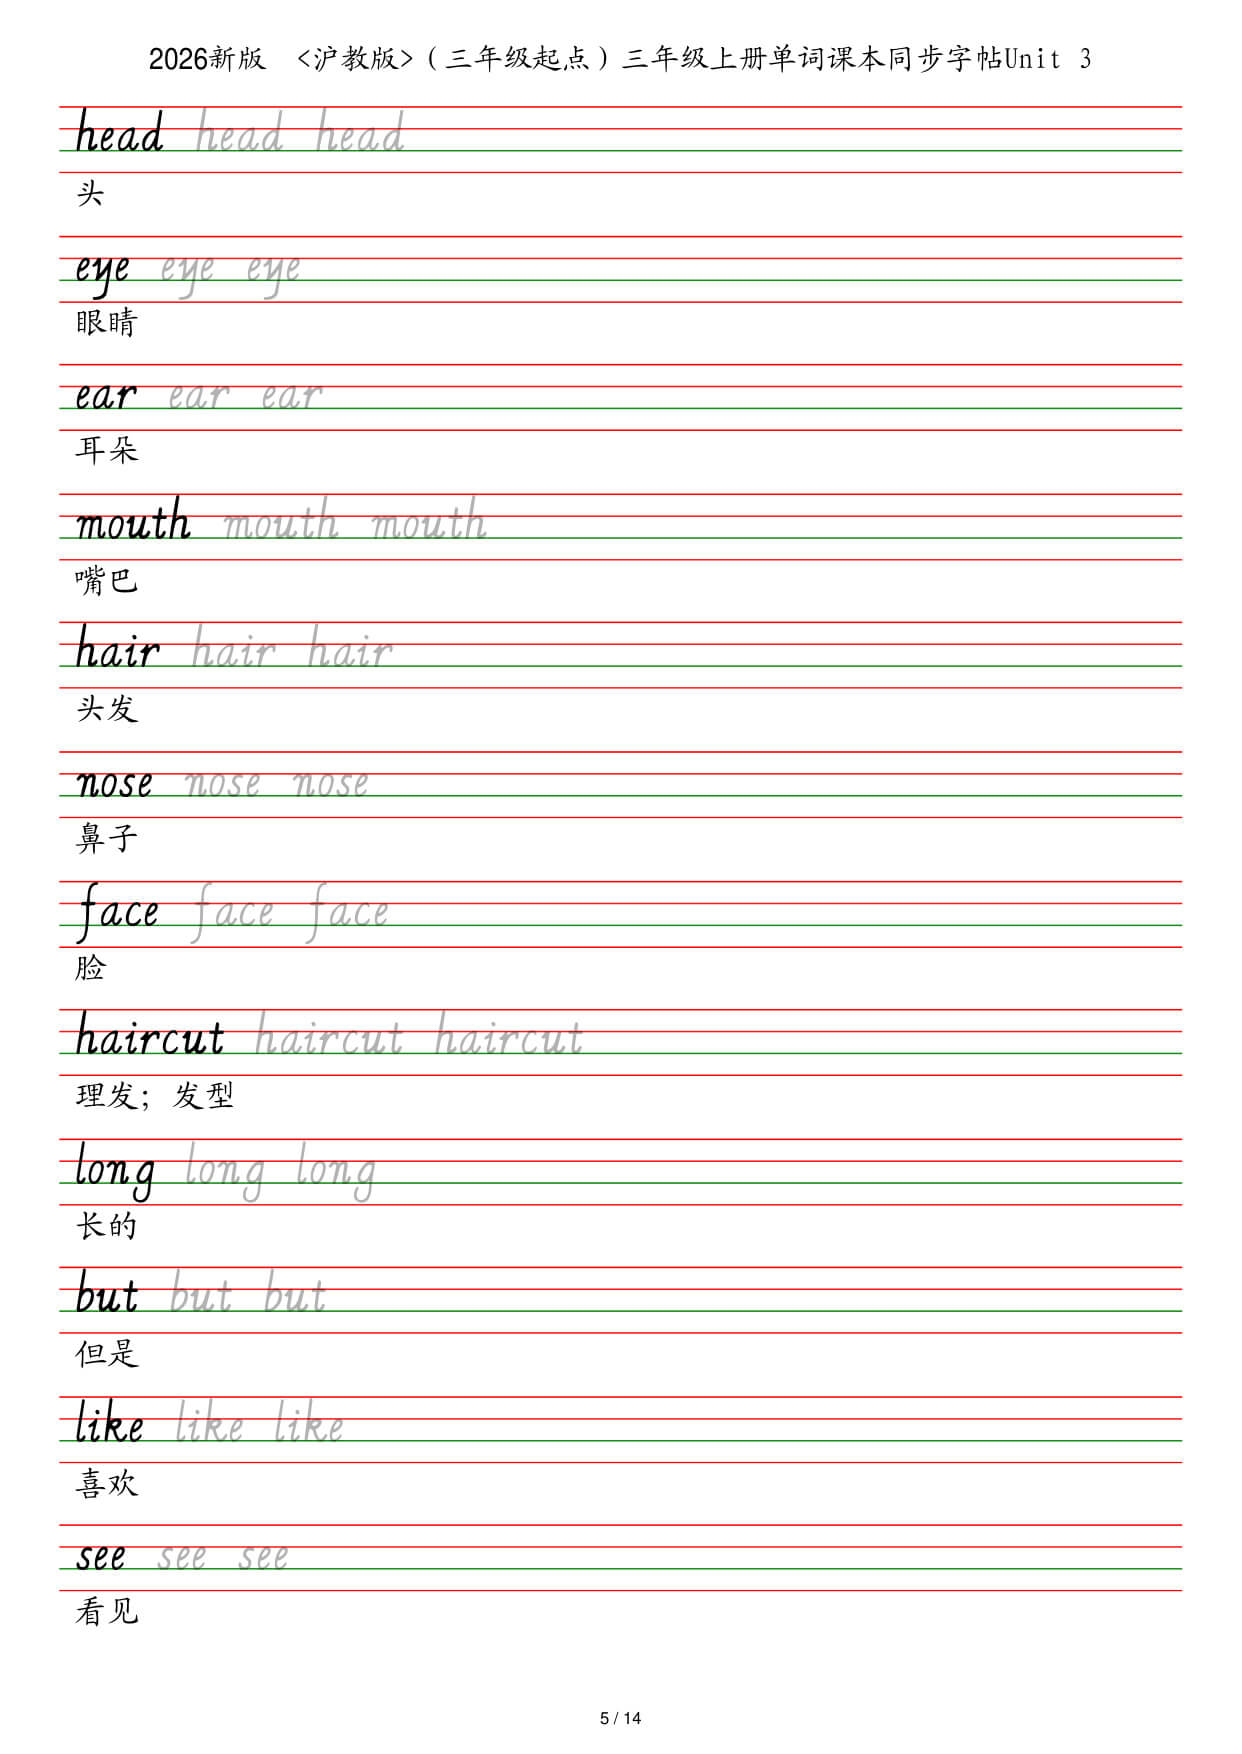 2026新版 <沪教版>（三年级起点）三年级上册单词课本同步字帖Unit 3
head head head
头
eye eye eye
眼睛
ear ear ear
耳朵
mouth mouth mouth
嘴巴
hair hair hair
头发
nose nose nose
鼻子
face face face
脸
haircut haircut haircut
理发；发型
long long long
长的
but but but
但是
like like like
喜欢
see see see
看见
5 / 14